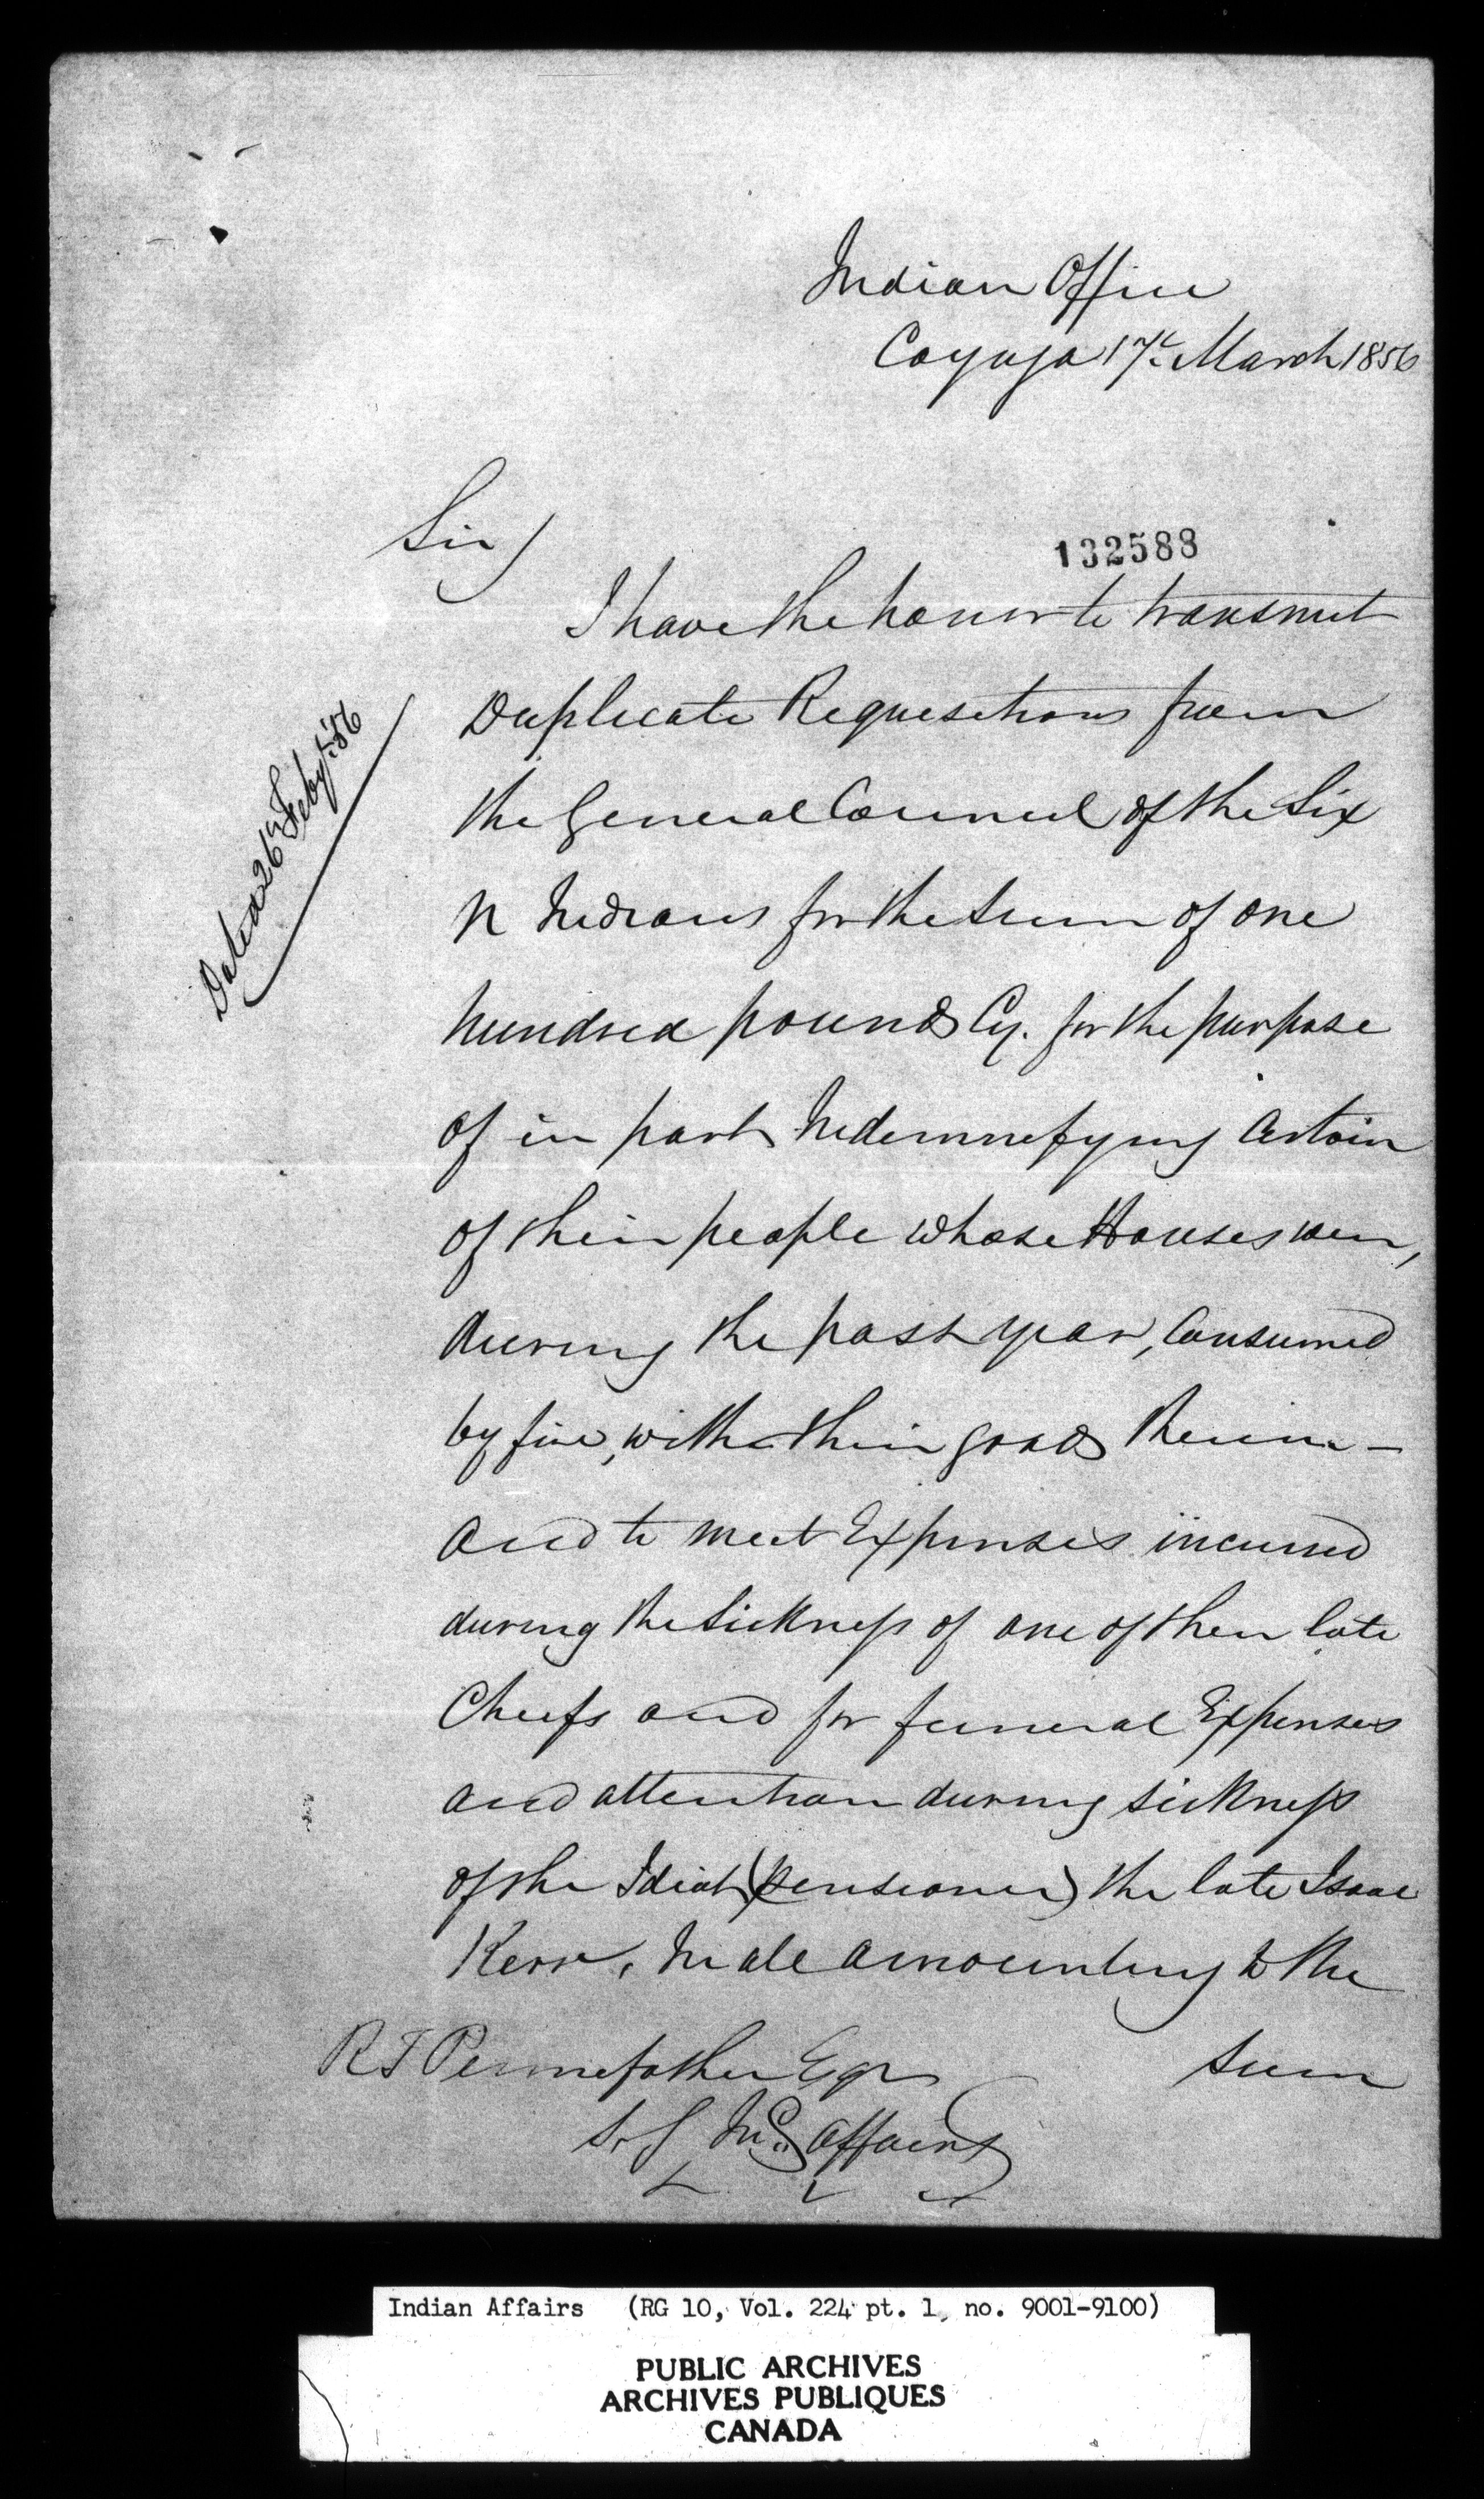 Indian Office
Cayuga 17th March 1856
Sir
132588
I have the honor to transmit
Duplicate Requisitions from
the General Council of the Six
N Indians for the sum of one
hundred pounds Cy. for the purpose
of in part Indemnifying certain
of their people whose Houses were,
during the past year, consumed
by fire, with their goods therein -
and to meet Expenses incurred
during the sickness of one of their late
Chiefs and for funeral Expenses
and attention during sickness
of the Idiot (pensioner) the late Isaac
Kerr, In all amounting to the
sum
R T Pennefather Esqr
S. G. Ind. Affairs
Dated 26th Feby '56
Indian Affairs (RG 10, Vol. 224 pt. 1, no. 9001-9100)
PUBLIC ARCHIVES
ARCHIVES PUBLIQUES
CANADA